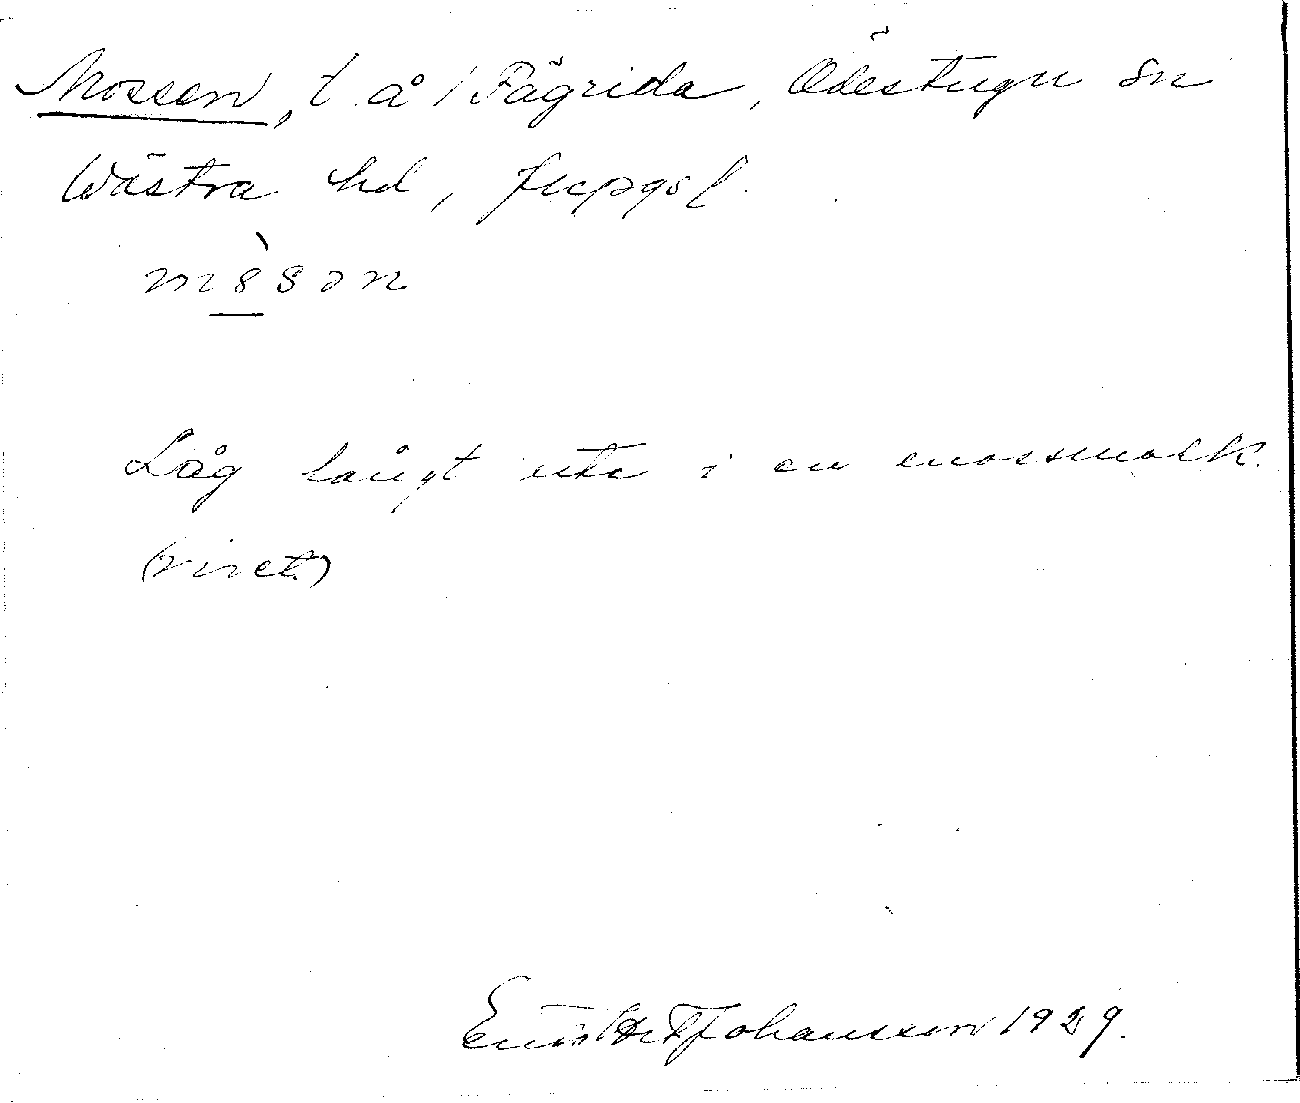 Mossen, t å / Fägrida, Ödestugu sn
Västra hd, Jkpgs l.
Låg långt ute i en mossmark.
(rivet)
Johansson 1929.